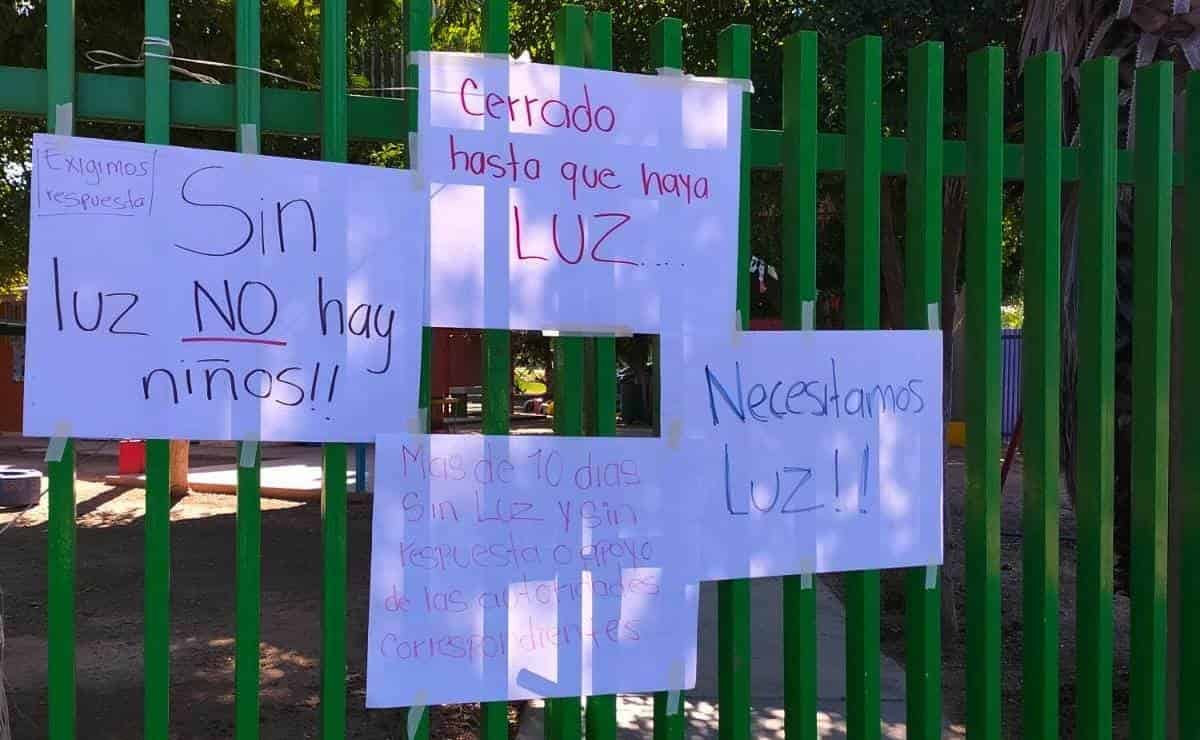 Exigimos
respuesta
Sin
luz NO hay
niños!!
Cerrado
hasta que haya
LUZ....
Mas de 10 dias
Sin Luz y sin
respuesta o apoyo
de las autoridades
correspondientes
Necesitamos
Luz!!